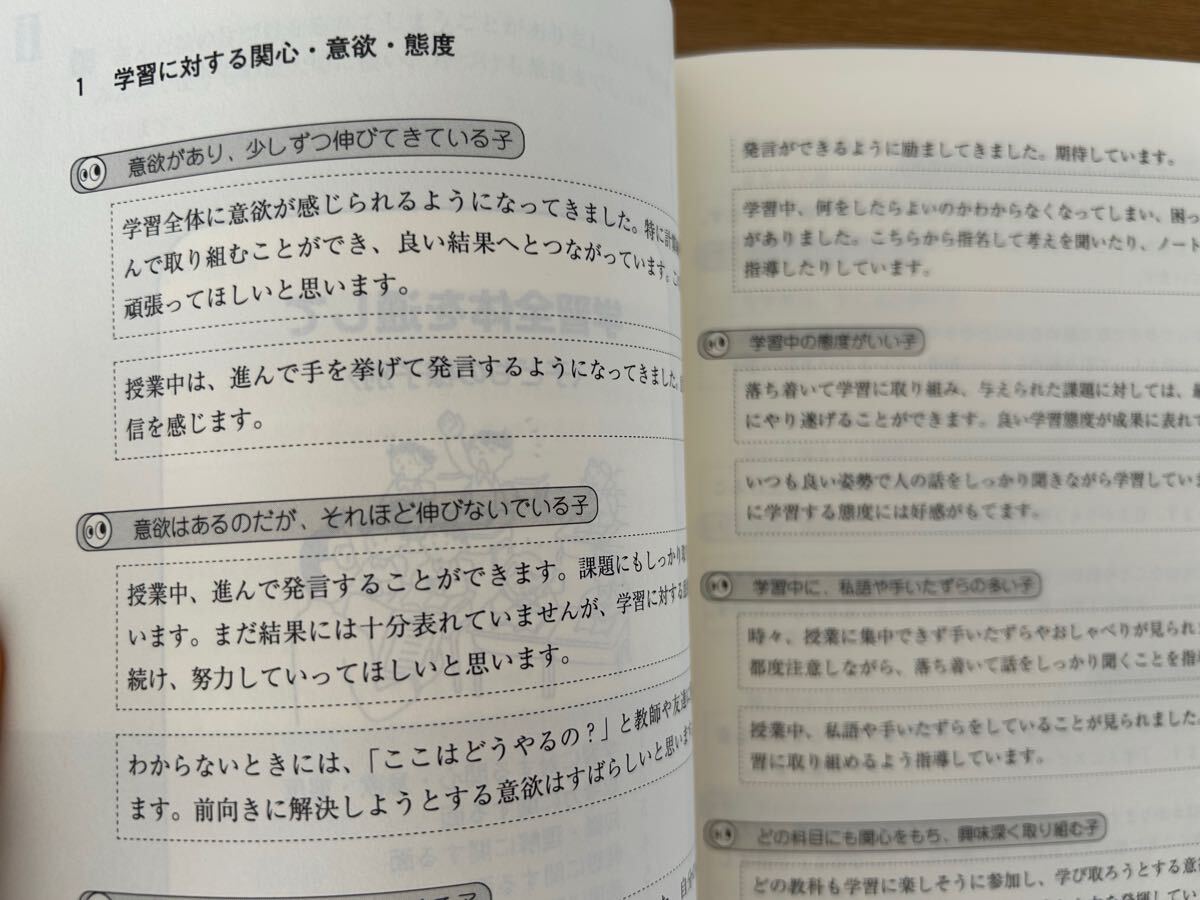 1 学習に対する関心・意欲・態度
意欲があり、少しずつ伸びてきている子
学習全体に意欲が感じられるようになってきました。特に計算
んで取り組むことができ、良い結果へとつながっています。こ
頑張ってほしいと思います。
授業中は、進んで手を挙げて発言するようになってきました。
信を感じます。
意欲はあるのだが、それほど伸びないでいる子
授業中、進んで発言することができます。課題にもしっかり取
います。まだ結果には十分表れていませんが、学習に対する
続け、努力していってほしいと思います。
わからないときには、「ここはどうやるの?」と教師や友達に
ます。前向きに解決しようとする意欲はすばらしいと思います
発言ができるように励ましてきました。期待しています。
学習中、何をしたらよいのかわからなくなってしまい、困っ
がありました。こちらから指名して考えを聞いたり、ノート
指導したりしています。
学習中の態度がいい子
落ち着いて学習に取り組み、与えられた課題に対しては、最
にやり遂げることができます。良い学習態度が成果に表れて
いつも良い姿勢で人の話をしっかり聞きながら学習していま
に学習する態度には好感がもてます。
学習中に、私語や手いたずらの多い子
時々、授業に集中できず手いたずらやおしゃべりが見られま
都度注意しながら、落ち着いて話をしっかり聞くことを指導
授業中、私語や手いたずらをしていることが見られました。
習に取り組めるよう指導しています。
どの科目にも関心をもち、興味深く取り組む子
どの教科も学習に楽しそうに参加し、学び取ろうとする意